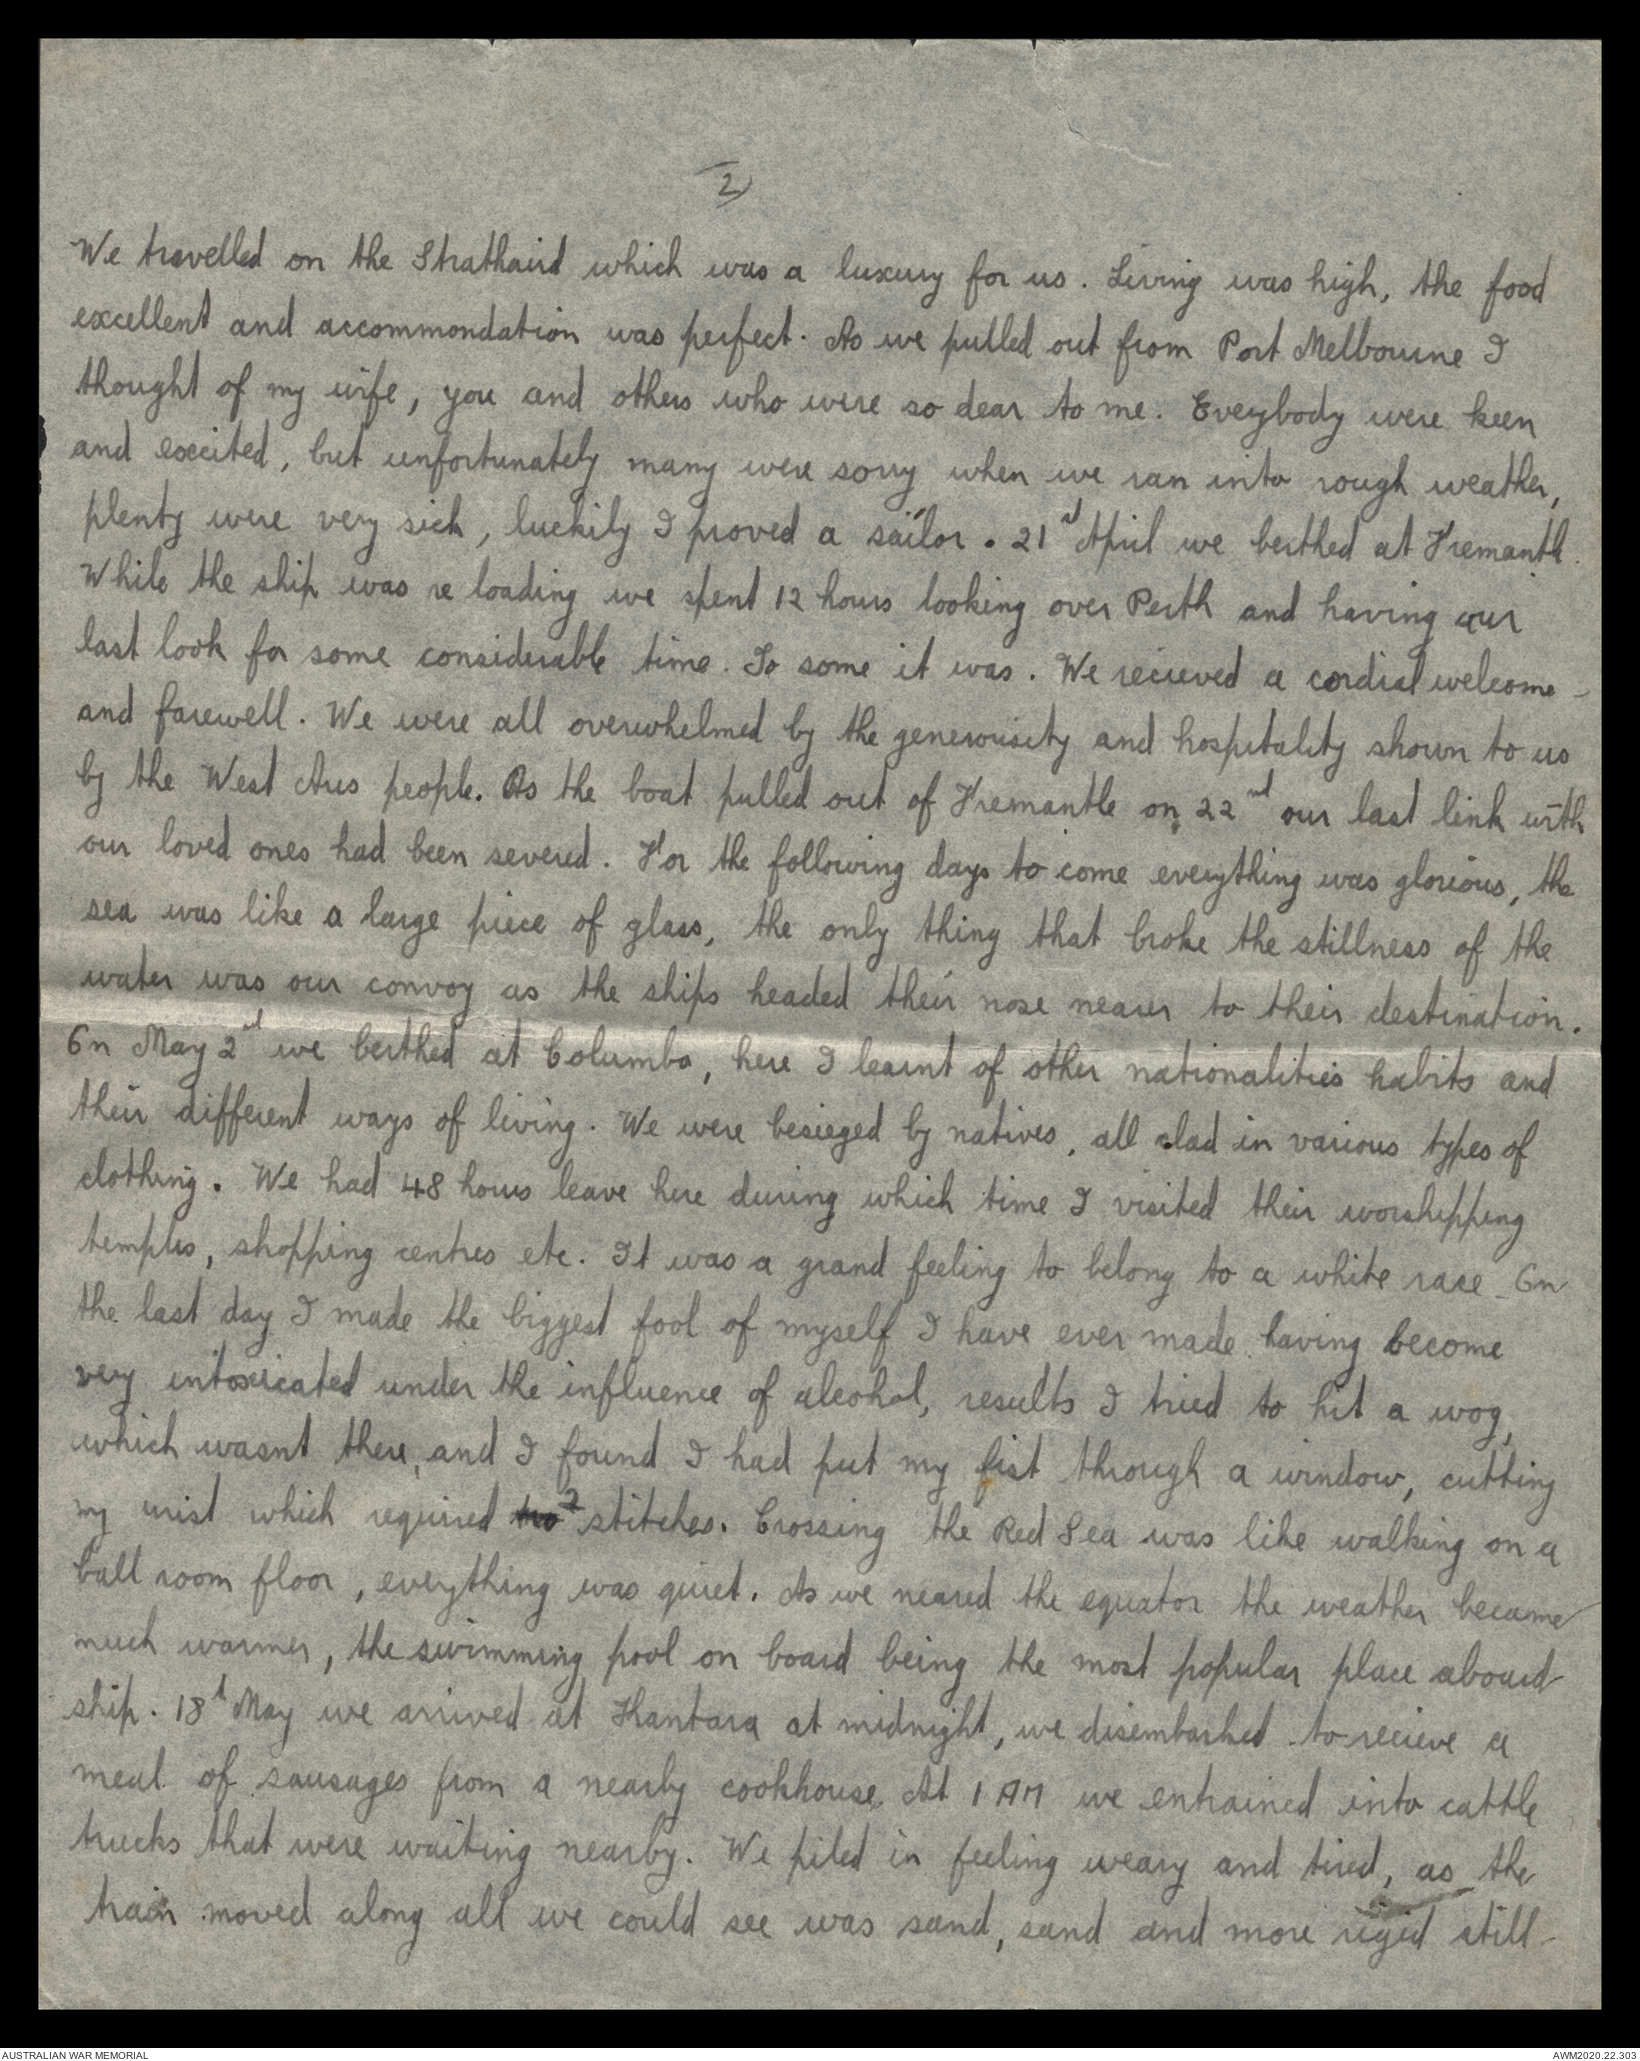 2)
We travelled on the Strathaird which was a luxury for us. Living was high, the food
excellent and accommondation was perfect. As we pulled out from Port Melbourne I
thought of my wife, you and others who were so dear to me. Everybody were keen
and excited, but unfortunately many were sorry when we ran into rough weather,
plenty were very sick, luckily I proved a sailor. 21st April we berthed at Fremantle.
While the ship was re loading we spent 12 hours looking over Perth and having our
last look for some considerable time. To some it was. We recieved a cordial welcome
and farewell. We were all overwhelmed by the generousity and hospitality shown to us
by the West Aus people. As the boat pulled out of Fremantle on 22nd our last link with
our loved ones had been severed. For the following days to come everything was glorious, the
sea was like a large piece of glass, the only thing that broke the stillness of the
water was our convoy as the ships headed their nose nearer to their destination.
On May 2nd we berthed at Columbo, here I learnt of other nationalities habits and
their different ways of living. We were besieged by natives, all clad in various types of
clothing. We had 48 hours leave here during which time I visited their worshipping
temples, shopping centres etc. It was a grand feeling to belong to a white race. On
the last day I made the biggest fool of myself I have ever made having become
very intoxicated under the influence of alcohol, results I tried to hit a wog,
which wasnt there, and I found I had put my fist through a window, cutting
my wrist which required two 2 stitches. Crossing the Red Sea was like walking on a
ball room floor, everything was quiet. As we neared the equator the weather became
much warmer, the swimming pool on board being the most popular place aboard
ship. 18th May we arrived at Kantara at midnight, we disembarked to recieve a
meal of sausages from a nearby cookhouse. At 1 AM we entrained into cattle
trucks that were waiting nearby. We piled in feeling weary and tired, as the
train moved along all we could see was sand, sand and more still
AUSTRALIAN WAR MEMORIAL
AWM2020.22.303